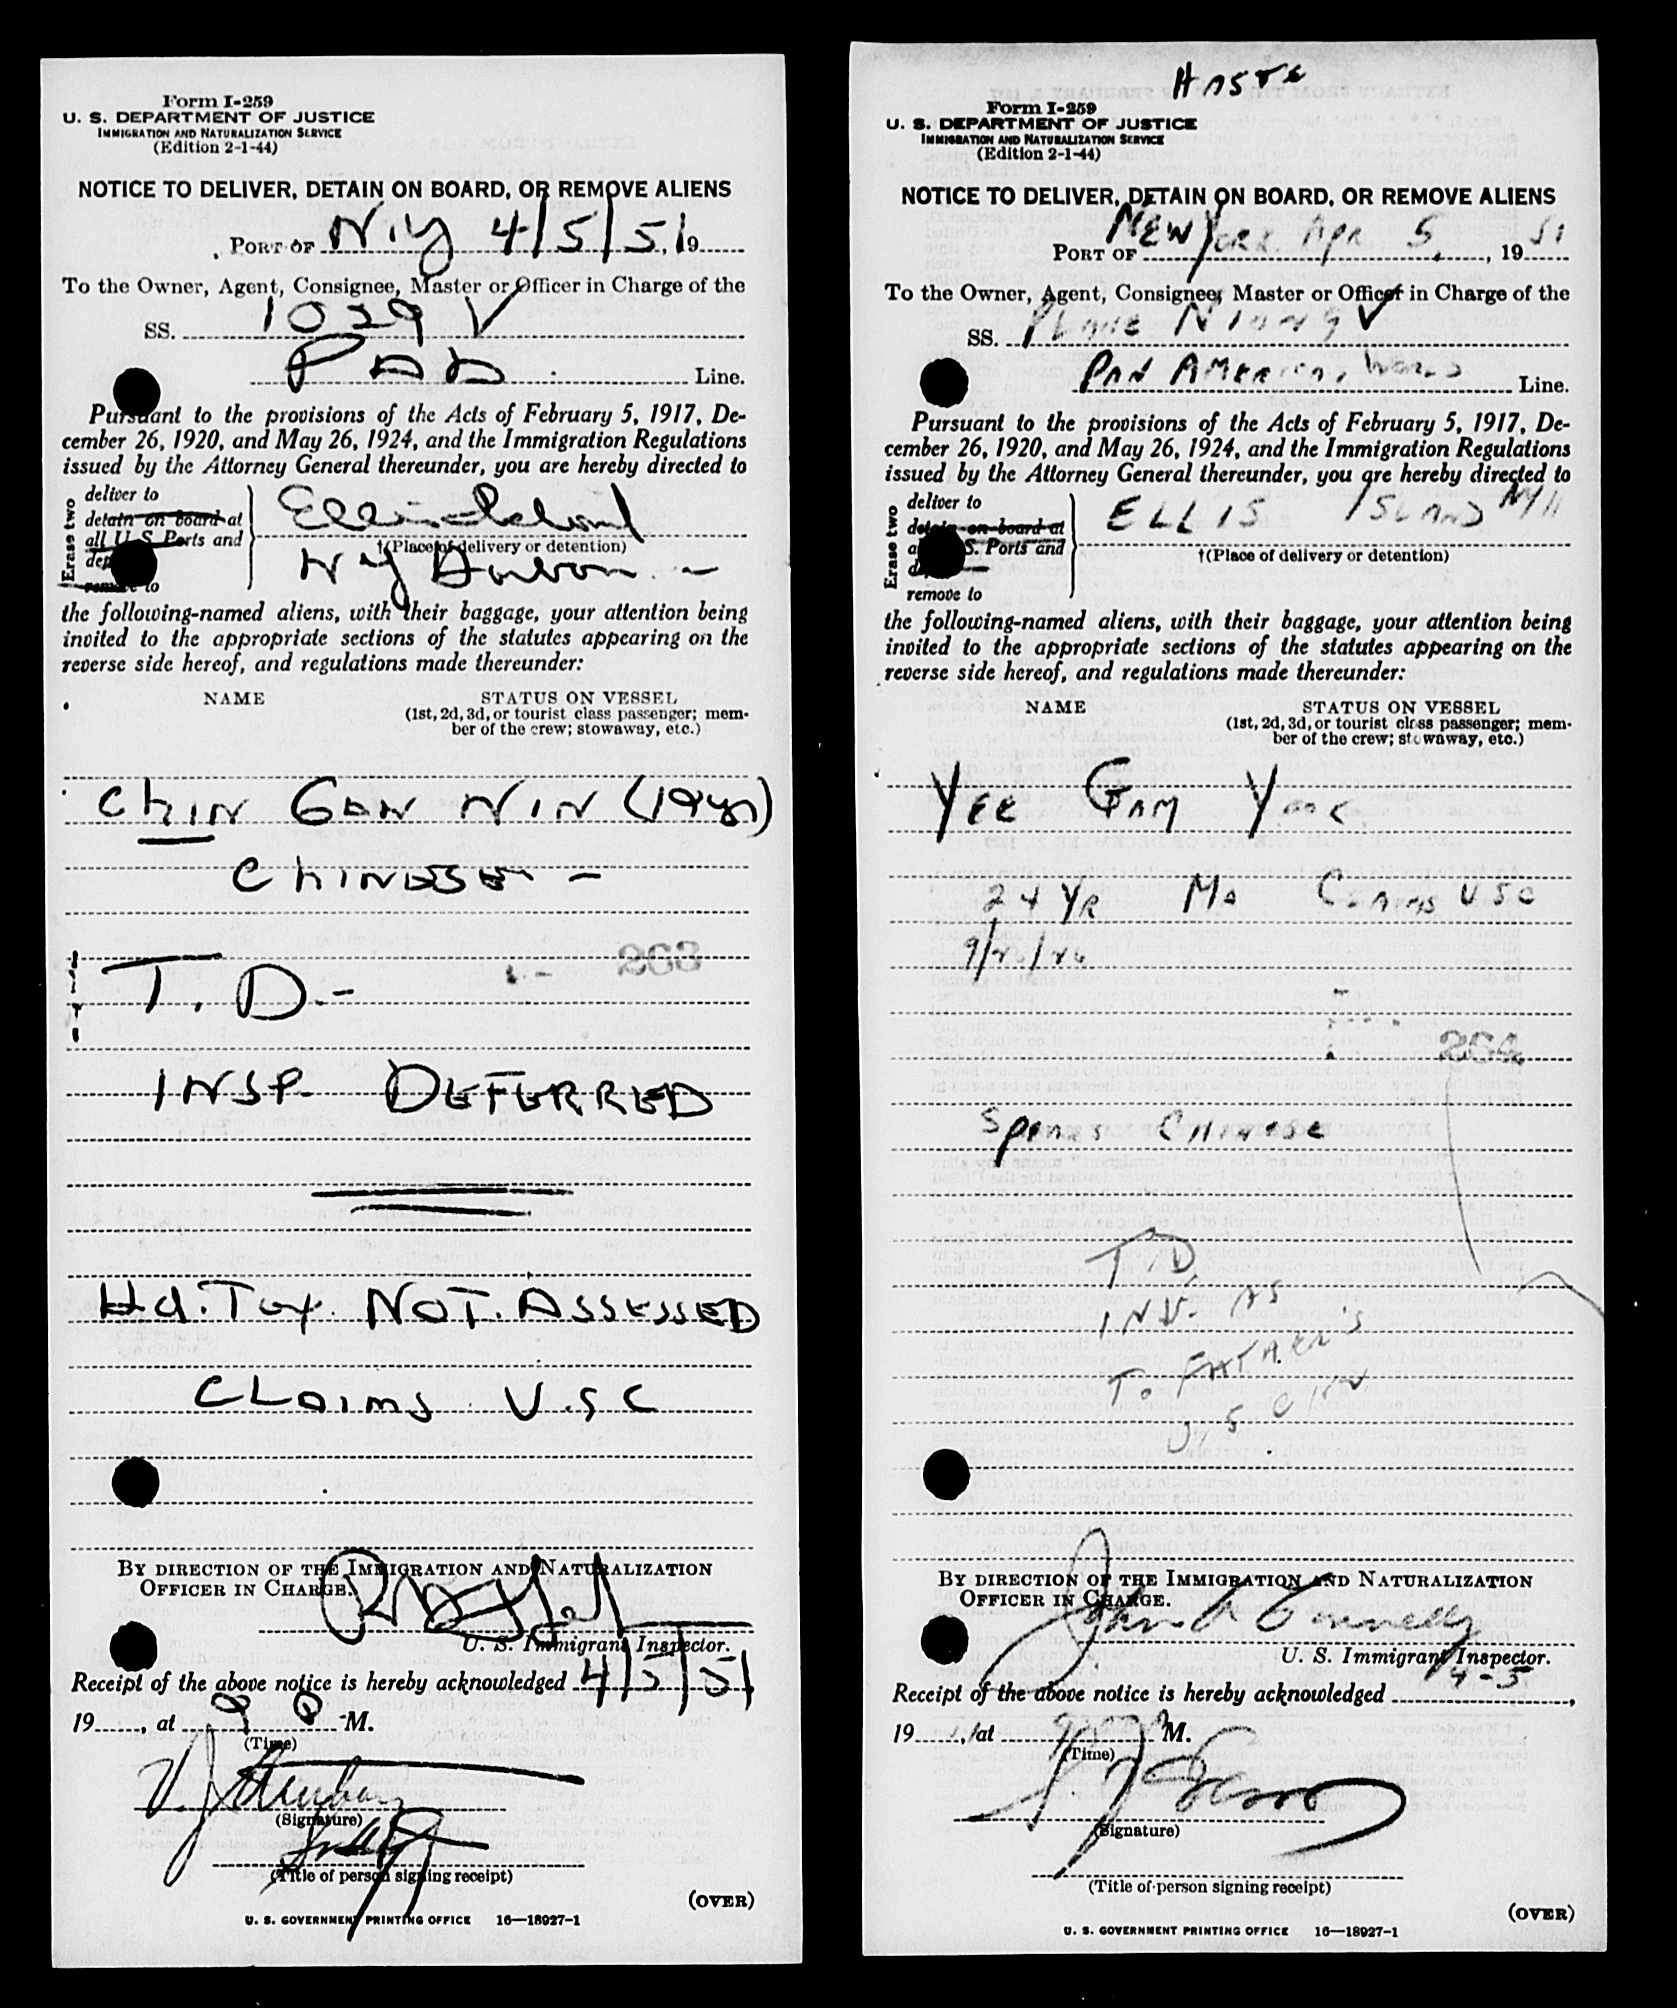 Form I-259
U. S. DEPARTMENT OF JUSTICE
IMMIGRATION AND NATURALIZATION SERVICE
(Edition 2-1-44)
NOTICE TO DELIVER, DETAIN ON BOARD, OR REMOVE ALIENS
PORT OF N.Y 4/5/51, 19
To the Owner, Agent, Consignee, Master or Officer in Charge of the
SS. 1029 V
PAA Line.
Pursuant to the provisions of the Acts of February 5, 1917, De-
cember 26, 1920, and May 26, 1924, and the Immigration Regulations
issued by the Attorney General thereunder, you are hereby directed to
Erase two
deliver to
detain on board at
all U S Ports and
remove to
Ellis Island
†(Place of delivery or detention)
NY Harbor -
the following-named aliens, with their baggage, your attention being
invited to the appropriate sections of the statutes appearing on the
reverse side hereof, and regulations made thereunder:
NAME
STATUS ON VESSEL
(1st, 2d, 3d, or tourist class passenger; mem-
ber of the crew; stowaway, etc.)
CHIN GAN NIN
CHINESE -
263
T. D. -
INSP. DEFERRED
Hd. Tax NOT. ASSESSED
CLAIMS U.S C
BY DIRECTION OF THE IMMIGRATION AND NATURALIZATION
OFFICER IN CHARGE.
U. S. Immigrant Inspector.
Receipt of the above notice is hereby acknowledged 4/5/51
19, at 9 P M.
(Time)
(Signature)
(Title of person signing receipt)
(OVER)
U. S. GOVERNMENT PRINTING OFFICE 16—18927-1
HASTE
Form I-259
U. S. DEPARTMENT OF JUSTICE
IMMIGRATION AND NATURALIZATION SERVICE
(Edition 2-1-44)
NOTICE TO DELIVER, DETAIN ON BOARD, OR REMOVE ALIENS
PORT OF NEW YORK APR 5, 1951
To the Owner, Agent, Consignee, Master or Officer in Charge of the
SS. PLANE N1029V
PAN AMERICAN WORLD Line.
Pursuant to the provisions of the Acts of February 5, 1917, De-
cember 26, 1920, and May 26, 1924, and the Immigration Regulations
issued by the Attorney General thereunder, you are hereby directed to
Erase two
deliver to
detain on board at
S. Ports and
remove to
ELLIS ISLAND
†(Place of delivery or detention)
the following-named aliens, with their baggage, your attention being
invited to the appropriate sections of the statutes appearing on the
reverse side hereof, and regulations made thereunder:
NAME
STATUS ON VESSEL
(1st, 2d, 3d, or tourist class passenger; mem-
ber of the crew; stowaway, etc.)
YEE GAM
24 YR Ma CLAIMS USC
9/26/26
264
SPEAKS CHINESE
T.D.
INV. AS
TO FATHER'S
BY DIRECTION OF THE IMMIGRATION AND NATURALIZATION
OFFICER IN CHARGE.
U. S. Immigrant Inspector.
Receipt of the above notice is hereby acknowledged 4-5,
19, at M.
(Time)
(Signature)
(Title of person signing receipt)
(OVER)
U. S. GOVERNMENT PRINTING OFFICE 16—18927-1